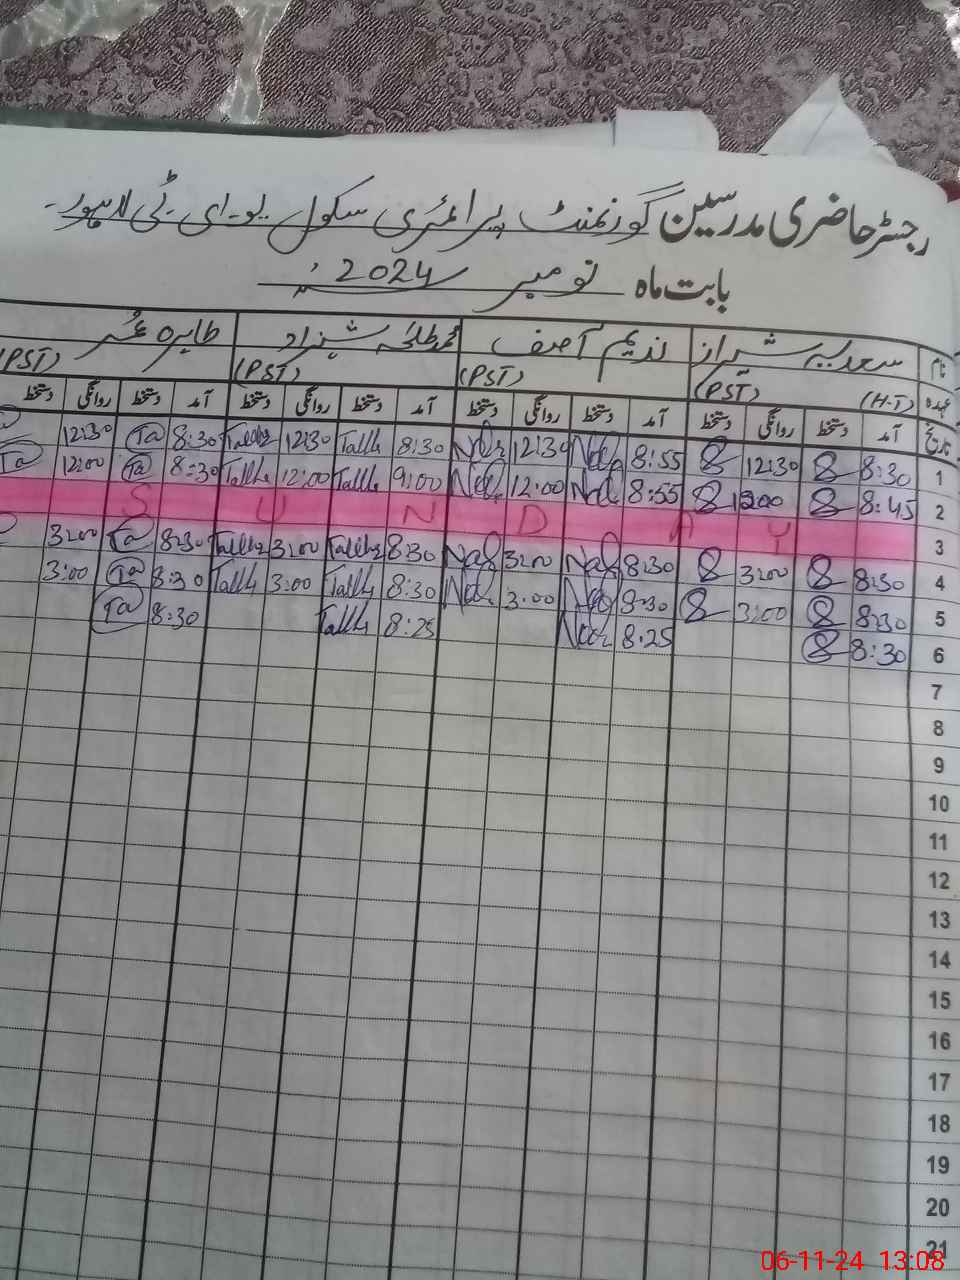 رجسٹر حاضری مدرسین گورنمنٹ پرائمری سکول یو۔ای۔ٹی لاہور۔
بابت ماہ نومبر 2024ء
نام سعدیہ شیراز ندیم آصف محمد طلحہ شہزاد طاہرہ عمر
عہدہ (H-T) (PST) (PST) (PST) (PST)
تاریخ آمد دستخط روانگی دستخط آمد دستخط روانگی دستخط آمد دستخط روانگی دستخط آمد دستخط روانگی دستخط
1 8:30 12:30 8:55 12:30 8:30 Talha 12:30 Talha 8:30 Ta 12:30
2 8:45 1200 8:55 12:00 9:00 Talha 12:00 Talha 8:30 Ta 12:00 Ta
3 SUNDAY
4 8:30 3:00 8:30 3:00 8:30 Talha 3:00 Talha 8:30 Ta 3:00
5 8:30 3:00 8:30 3:00 8:30 Talha 3:00 Talha 8:30 Ta 3:00
6 8:30 8:25 8:25 Talha 8:30 Ta
7
8
9
10
11
12
13
14
15
16
17
18
19
20
21
06-11-24 13:08